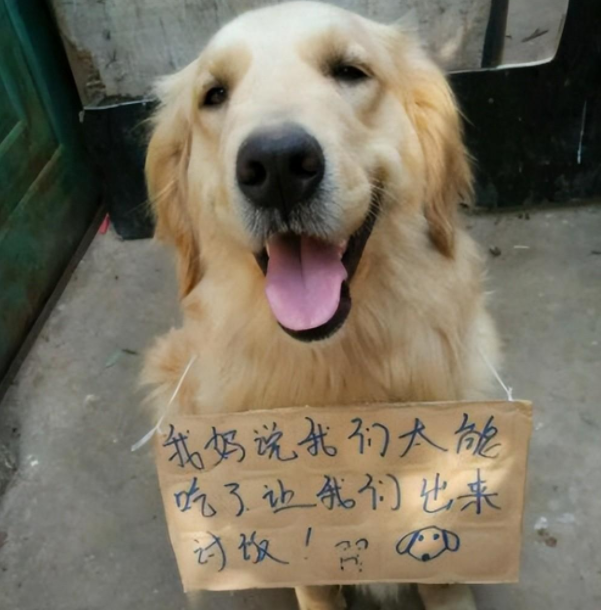 我妈说我们太能
吃了让我们出来
讨饭！